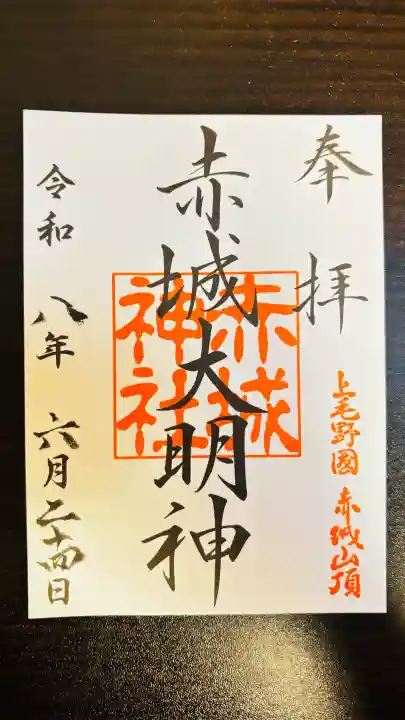 奉拝
上毛野國 赤城山頂
赤城大明神
赤城神社
令和八年 六月二十四日